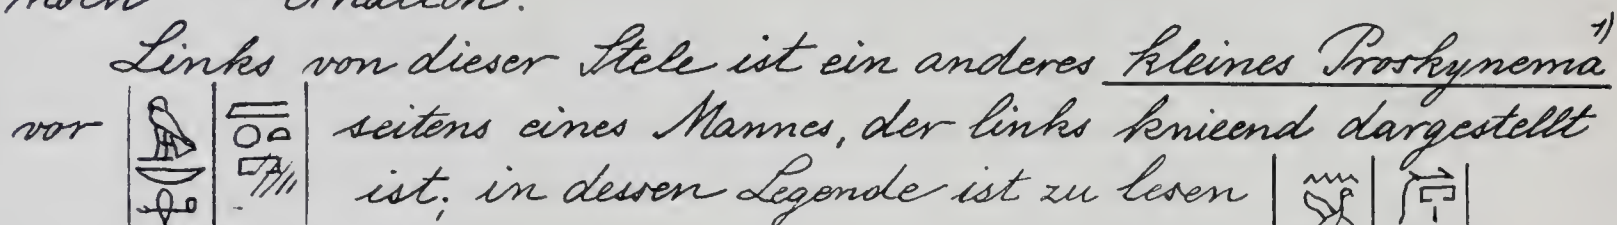 Links von dieser Stele ist ein anderes kleines Proskynema 1)
vor seitens eines Mannes, der links knieend dargestellt
ist; in dessen Legende ist zu lesen